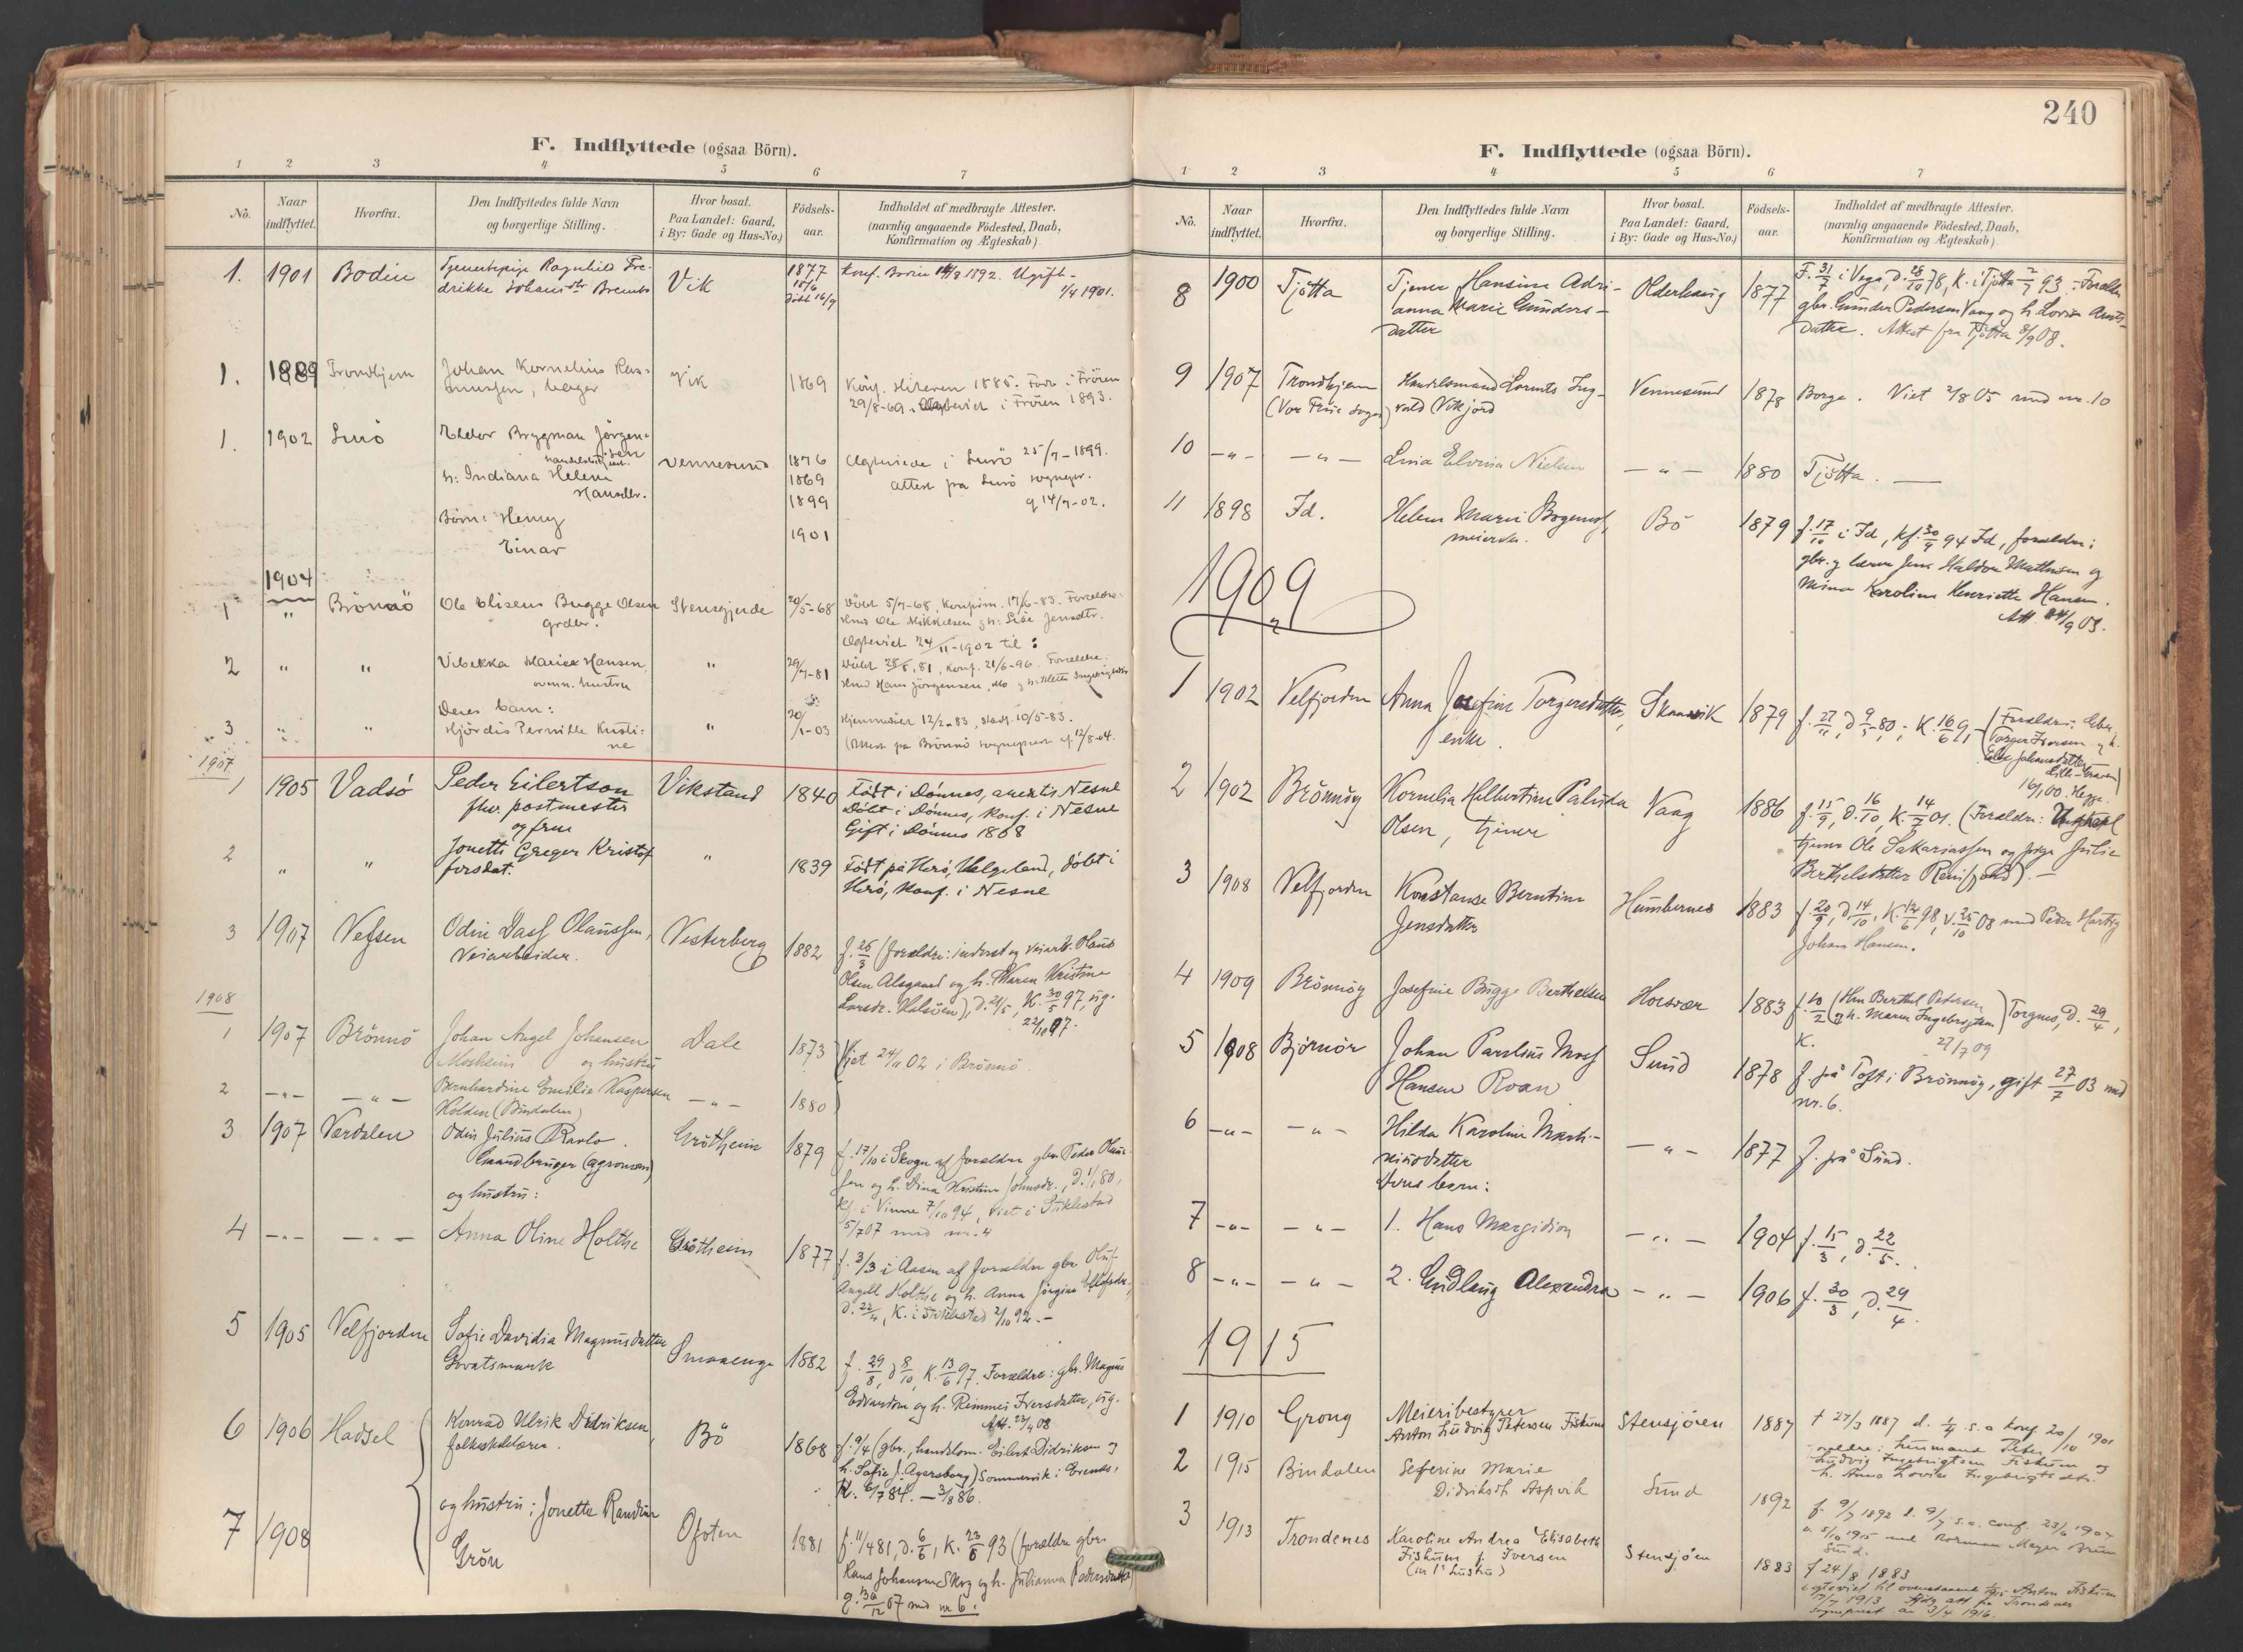 F. Indflyttede (ogsaa Börn).
1 2 3 4 5 6 7
No. Naar indflyttet. Hvorfra. Den Indflyttedes fulde Navn og borgerlige Stilling. Hvor bosat. Paa Landet: Gaard, i By: Gade og Hus-No.) Födsels-aar. Indholdet af medbragte Attester. (navnlig angaaende Födested, Daab, Konfirmation og Ægteskab)
1. 1901 Bodin Tjenestepige Ragnhild Fre-
drikke Johansdtr Vik 1877 Konf. Bodin 1892. Ugift -
1/4 1901.
1. 1889 Trondhjem Johan Kornelius Ras-
mussen, bager Vik 1869 Konf. Hitteren 1885. Født i Fröien
29/8-69. i Fröien 1893.
1. 1902 Lurö Eldor Brygman Jörgen-
sen Vennesund 1876 i Lurö 25/7-1899.
h: Indiana Helene 1869 Attest fra Lurö sognepr.
Hansdtr. 1899 14/7-02.
Börn: Henry
Einar 1901
1904
1 " Brönnö Ole Eliseus Bugge Olsen Stensgjerde 20/5-68 Döbt 5/7-68, Konfirm. 17/6-83. Forældre:
grdbr. Ole Mikkelsen h: Lise Jensdtr.
24/11-1902 til:
2 " " Vibekka Marie Hansen, " 29/7-81 Döbt 28/8, 81, Konf. 21/6-96. Forældre:
ovenn. hustru Hans Jörgensen, Mo
Deres barn:
3 " " Hjördis Pernille Kristi- " 20/1-03 Hjemmedöbt 12/2-83, stadf. 10/5-83.
ne (Attest fra Brönnö sogneprest 12/8-04.
1907
1 1905 Vadsö Peder Eilertson Vikstand 1840 Födt i Dönnes, Nesne
fhv. postmester Döbt i Dönnes, Konf. i Nesne
og frue Gift i Dönnes 1868
2 " " Jonetta Greger Kristof- " 1839 Födt på Herö, Helgeland, döbt i
fersdat. Herö, Konf. i Nesne
3 1907 Vefsen Odin Dass Olaussen, Vesterberg 1882 f. 26/3 (forældre: inderst og veiarb. Olaus
Veiarbeider. Olsen Alsgaard og h. Maren Kristine
Larsdr. Halsöen), D. 21/5, K. 30/5 97, ug.
1908
1 1907 Brönnö Johan Angel Johansen Dale 1873 Viet 24/11 02 i Brönnö.
Mosheim og hustru
2 -"- -"- Bernhardine Emilie Kaspersen -"- 1880
Holden (Bindalen)
3 1907 Værdalen Odin Julius Ravlo. Grötheim 1879 f. 17/10 i Skogn af forældre gbr. Peder Olaus-
Gaardbruger (agronom) sen og h. Dina Kristine Johnsdr., D. 1/1 80,
og hustru: Kf. i Vinne 7/10 94, viet i Stiklestad
5/7 07 med nr. 4
4 -"- -"- Anna Oline Holthe Grötheim 1877 f. 3/3 i Aasen af forældre gbr. Oluf
Angell Holthe og h. Anna Jörgine
D. 22/4, K. i Stiklestad 2/10 92.-
5 1905 Velfjorden Sofie Davidia Magnusdatter Smaaenge 1882 f. 29/8, D 8/10, K. 13/6 97. Forældre: gbr. Magnus
Govatsmark Edvardsen og h. Rimmei Iversdatter, ug.
Att. 22/4 08
6 1906 Hadsel Konrad Ulrik Didriksen, Bö 1868 f. 9/4 (gbr., handelsm. Eilert Didriksen og
folkeskolelærer. h. Sofie f. Agersborg) Sommervik i Evenes,
K. 6/7 84. - 3/8 86.
7 1908 og hustru: Jonetta Randine Ofoten 1881 f. 11/4 81, D. 6/6, K. 23/6 93 (forældre gbr.
Grön Hans Johansen Skog og h. Julianna Pedersdatter)
g. 30/12 07 med nr 6.
240
F. Indflyttede (ogsaa Börn).
1 2 3 4 5 6 7
No. Naar indflyttet. Hvorfra. Den Indflyttedes fulde Navn og borgerlige Stilling. Hvor bosat. Paa Landet: Gaard, i By: Gade og Hus-No.) Födsels-aar. Indholdet af medbragte Attester. (navnlig angaaende Födested, Daab, Konfirmation og Ægteskab)
8 1900 Tjötta Tjener Hansine Adri- Olderhaug 1877 F. 31/7 i Vega, D. 28/10 78, K. i Tjötta 2/7 93. - Forældre
anna Marie Gunders- gbr. Gunder Pedersen Vaag og h. Lovise Arnts-
datter datter. Attest fra Tjötta 8/9 08.
9 1907 Trondhjem Handelsmand Lorents Ing- Vennesund 1878 Borge. Viet 2/8 05 med nr. 10
(Vor Frue sogn) vald Vikjord
10 -"- -"- Lina Elvina Nielsen -"- 1880 Tjötta.
11 1898 Id. Helene Marie Bö 1879 f. 17/10 i Id, Kf. 30/9 94 Id, forældre:
meierske. gbr. g lærer Jens Haldor Mathisen og
Mina Karoline Henriette Hansen.
1909
1 1902 Velfjorden Anna Josefine Torgersdatter, Skaanvik 1879 f. 27/11, D 9/5-80, K. 16/6 9, - (Forældre:
enke. Torger Iversen
Else Johansdatter
2 1902 Brönnöy Kornelia Hilbertine Palvida Vaag 1886 f. 15/9, D. 16/10, K. 14/7 01. (Forældre:
Olsen, tjener tjener Ole Sakariassen og pige Julie
Berthelsdatter
3 1908 Velfjorden Konstanse Berntine Humbernes 1883 f. 20/9, D. 14/10, K. 12/6 98, V. 25/10 08 med Peder Hartvig
Jensdatter Johan Hansen.
4 1909 Brönnöy Josefine Bugge Berthelsen Horsvær 1883 f. 10/2 (Hm Berthel Petersen g h. Maren Ingebrigtsen) Torgnes, D. 29/4,
K. 27/7 09
5 1908 Björnör Johan Parelius Moss Sund 1878 f. på Toft i Brönnöy, gift 27/7 03 med
Hansen Roan nr. 6.
6 -"- -"- Hilda Karoline Mark- -"- 1877 f. på Sund.
niusdatter
Deres barn:
7 -"- -"- 1. Hans Margidion -"- 1904 f. 15/3, D. 22/5.
8 -"- -"- 2. Gudlaug Alexandra -"- 1906 f. 30/3, D. 29/4.
1915
1 1910 Grong Meieribestyrer Stensjöen 1887 f 27/3 1887 d. s. a konf 20/10 1901
Anton Ludvig Petersen Fiskum Peter
Ludvig Ingebrigtsen Fiskum og
h. Anna Lovise Ingebrigtsdtr.
2 1915 Bindalen Seferine Marie Sund 1892 f. 9/7 1892 s. a. conf. 1907
Didriksdt. Aspvik 5/10 1915 med Norman Meyer
Sund.
3 1913 Trondenes Karoline Andrea Elisabeth Stensjöen 1883 f 24/8 1883
Fiskum f. Iversen til ovenstaaende Anton Fiskum
(nr 1's hustru) 1913 att fra Trondenes
Sogneprest av 3/4 1916.